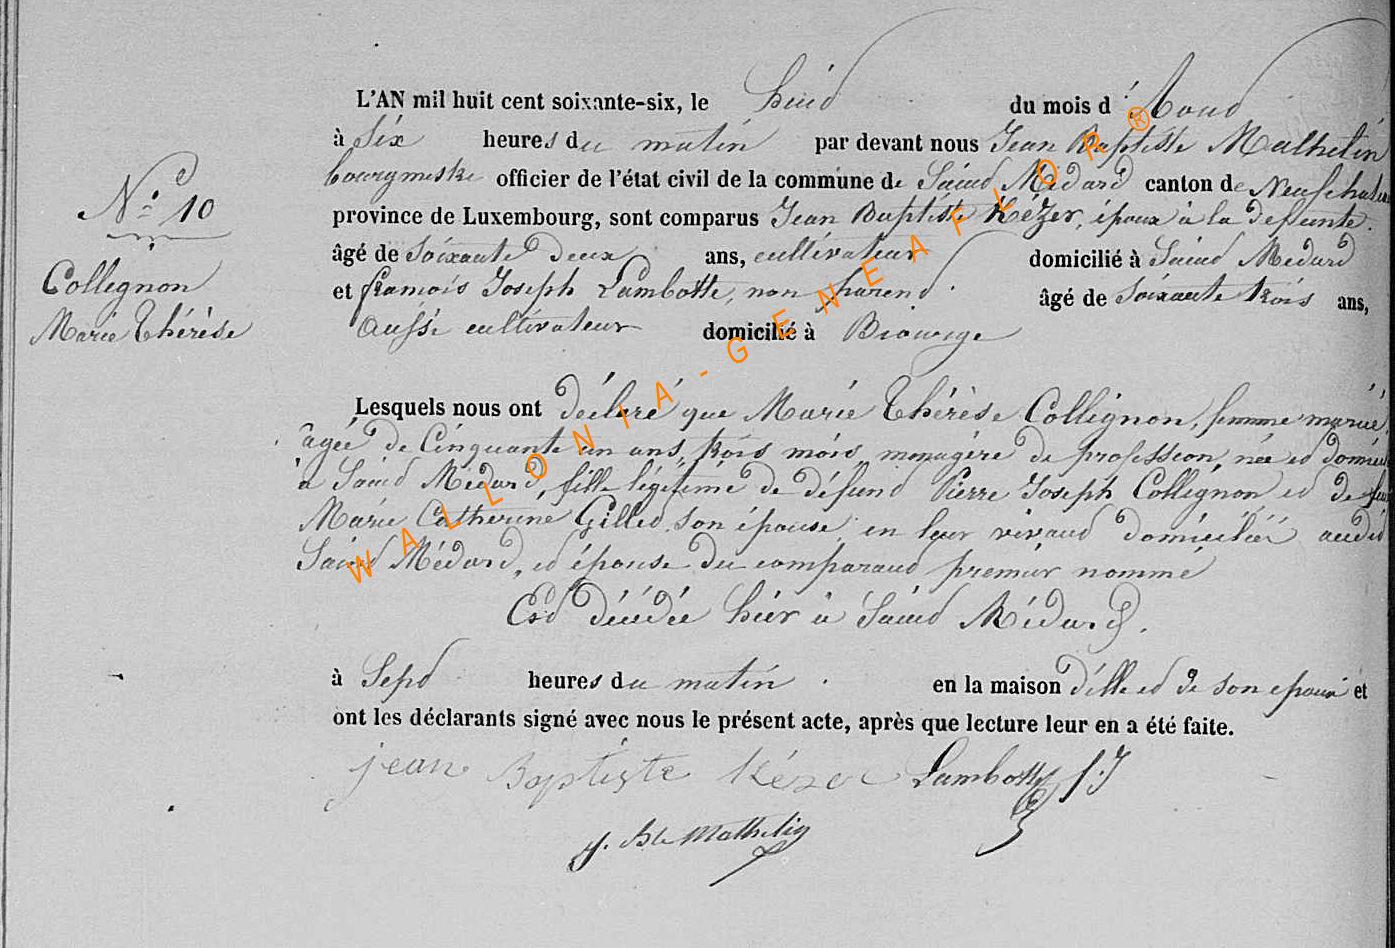 L'AN mil huit cent soixante-six, le huid du mois d'Aoud
à Six heures du matin par devant nous Jean Baptiste Mathelin
bourgmestre officier de l'état civil de la commune de Saind Médard canton de Neufchateau
province de Luxembourg, sont comparus Jean Baptiste Kézer, époux à la defeunte.
âgé de Soixante Deux ans, cultivateur domicilié à Saind Médard
et framçois Joseph Lambotte, non parend. âgé de Soixante trois ans,
Aussi cultivateur domicilié à Biourge
N.º 10
Collegnon
Marie Thérèse
Lesquels nous ont déclaré que Marie Thérèse Collignon, femme mariée,
agée de Cinquante un ans, trois mois, menagére de profession, née ed domiciliée
à Saind Médard, fille légitime de défund Pierre Joseph Collignon ed de feue
Marie Catherine Gilled son épouse, en leur vivand domiciliés audid
Saind Médard, ed épouse du comparand premier nommé
Esd décédée hier à Saind Médard.
à Sepd heures du matin. en la maison d'elle ed de son epoux et
ont les déclarants signé avec nous le présent acte, après que lecture leur en a été faite.
jean Baptiste Kézer Lambotte f. J
j. Bte Mathelin
WALLONIA-GENEAFLOR®